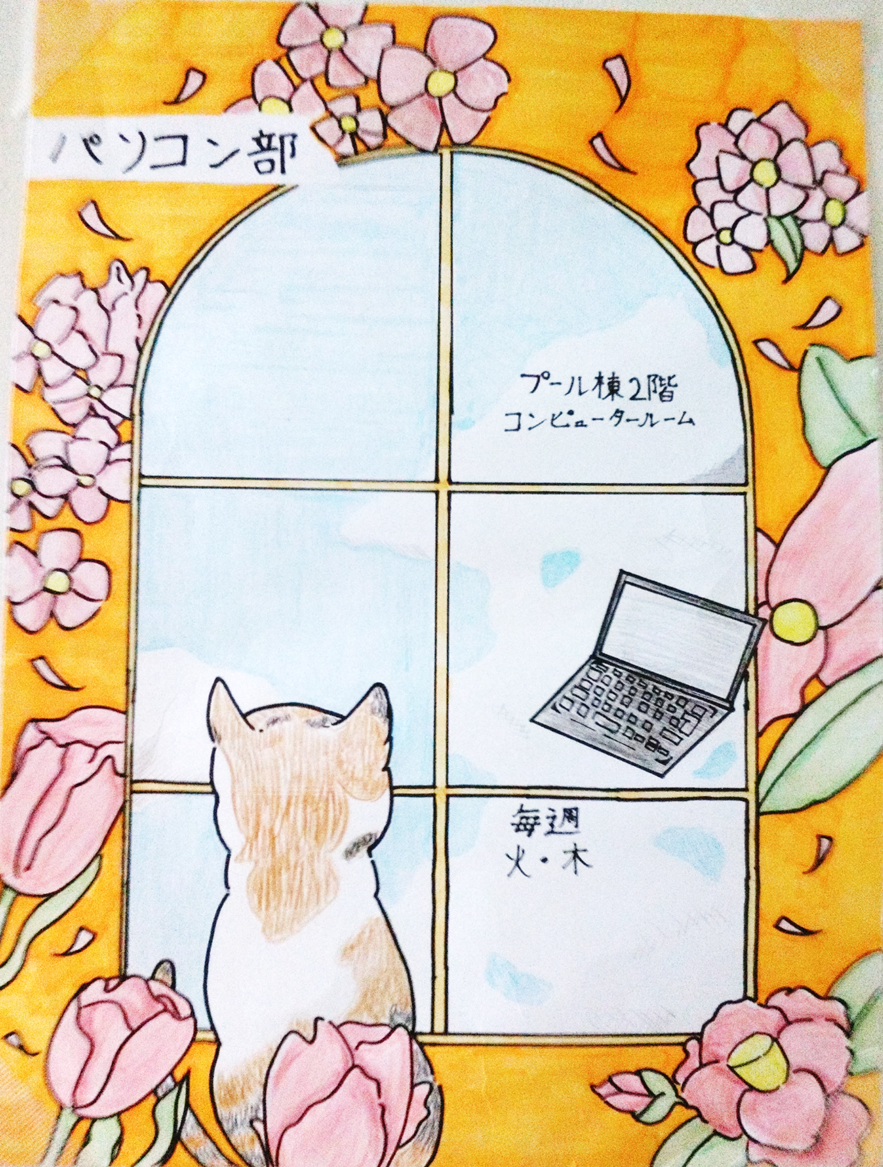 パソコン部
プール棟2階
コンピュータールーム
毎週
火・木